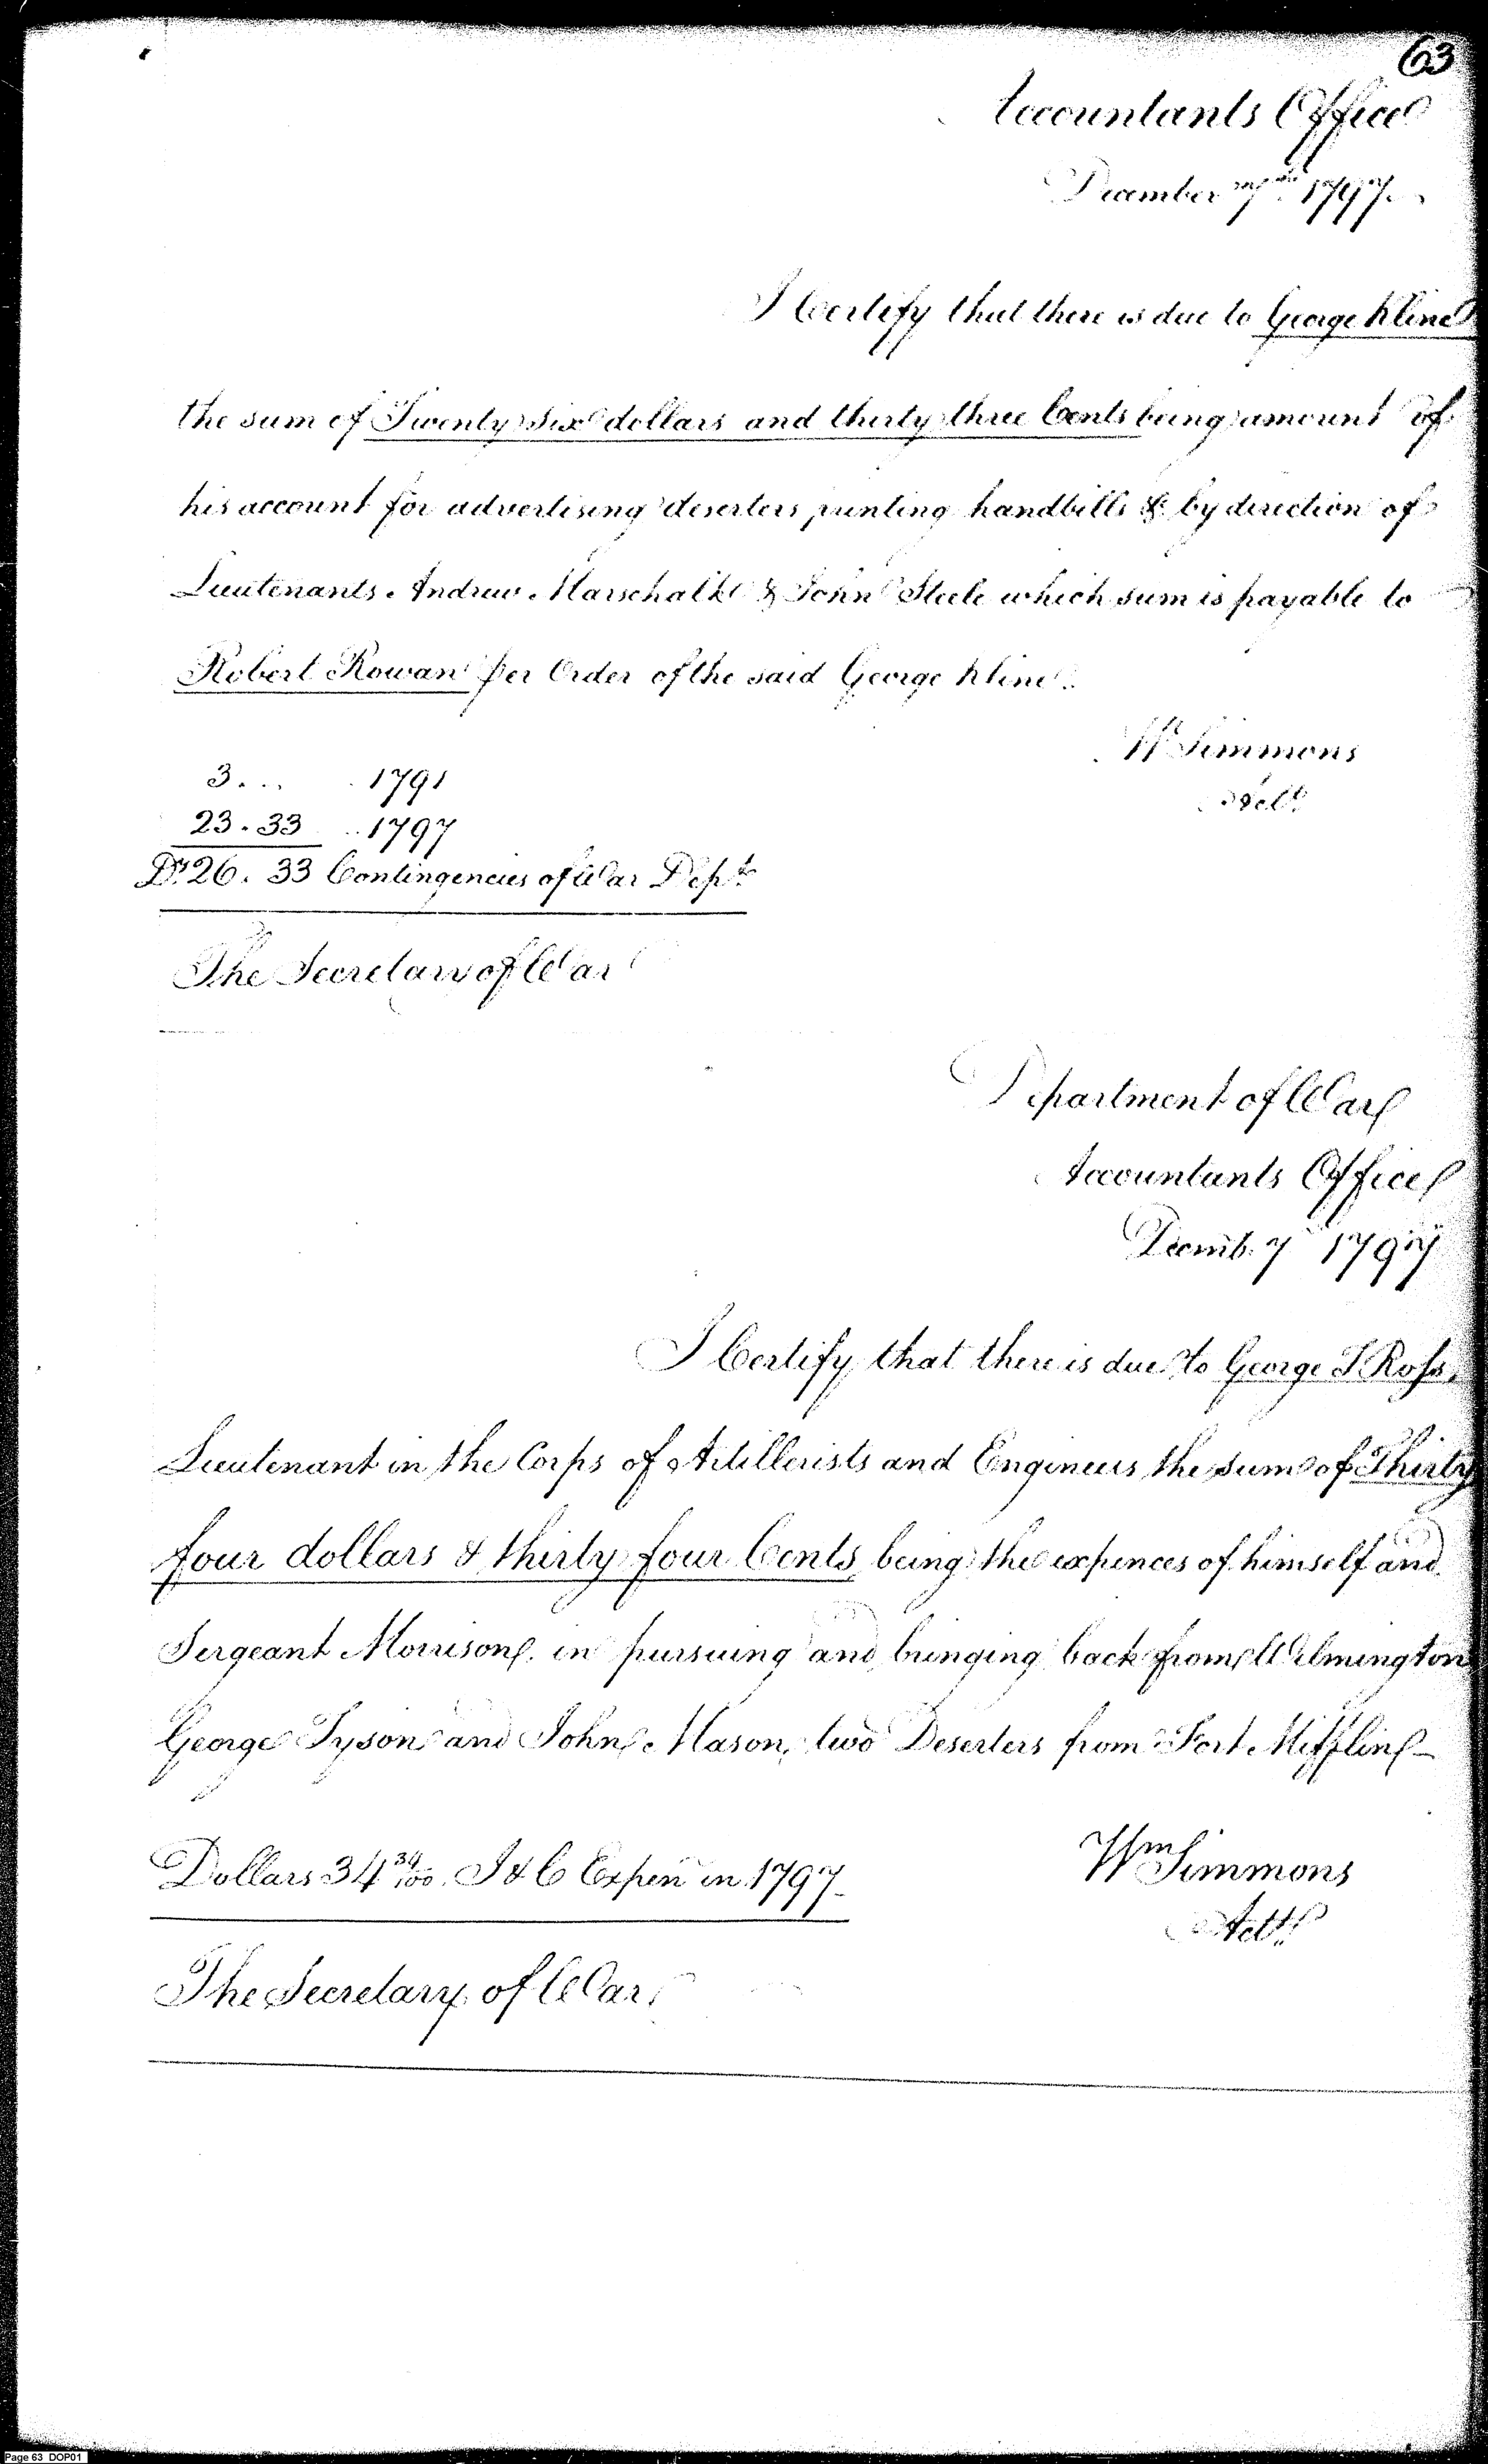 63
Accountants Office
December 7th 1797.
I Certify that there is due to George Kline
the sum of Twenty six dollars and thirty three Cents being amount of
his account for advertising deserters, printing handbills &c by direction of
Lieutenants Andrew Marschalk & John Steele which sum is payable to
Robert Rowan per Order of the said George Kline.
Wm Simmons
Actt.
3... 1791
23.33 .. 1797
Drs. 26.33 Contingencies of War Dept.
The Secretary of War
Department of War
Accountants Office
Decemb. 7 1797
I Certify that there is due to George T Ross,
Lieutenant in the Corps of Artillerists and Engineers the sum of Thirty
four dollars & thirty four Cents, being the expences of himself and
Sergeant Morrison, in pursuing and bringing back from Wilmington
George Tyson and John Mason, two Deserters from Fort Mifflin—
Dollars 34 34/100. I & C Expen in 1797—
Wm Simmons
Actt.
The Secretary of War,
Page 63 DOP01